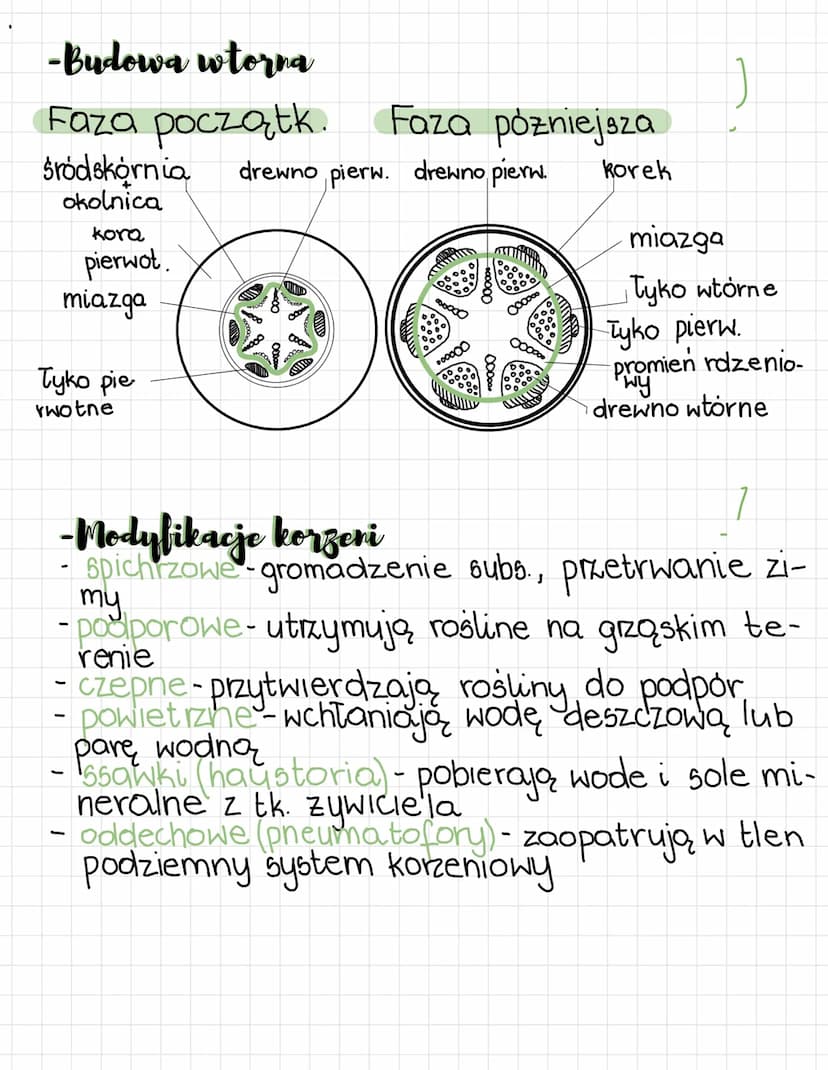 -Budowa wtorna
Faza początk.
Faza późniejsza
śródskórnia
+
okolnica
kora
pierwot.
miazga
Łyko pie
rwotne
drewno pierw.
drewno pierw.
korek
miazga
Łyko wtórne
Łyko pierw.
promień rdzenio-
wy
drewno wtórne
-Modyfikacje korzeni
- spichrzowe - gromadzenie subs., przetrwanie zi-
my
- podporowe - utrzymują rośline na grząskim te-
renie
- czepne - przytwierdzają rośliny do podpór
- powietrzne - wchłaniają wodę deszczową lub
parę wodną
- ssawki (haustoria) - pobierają wode i sole mi-
neralne z tk. żywiciela
- oddechowe (pneumatofory) - zaopatrują w tlen
podziemny system korzeniowy